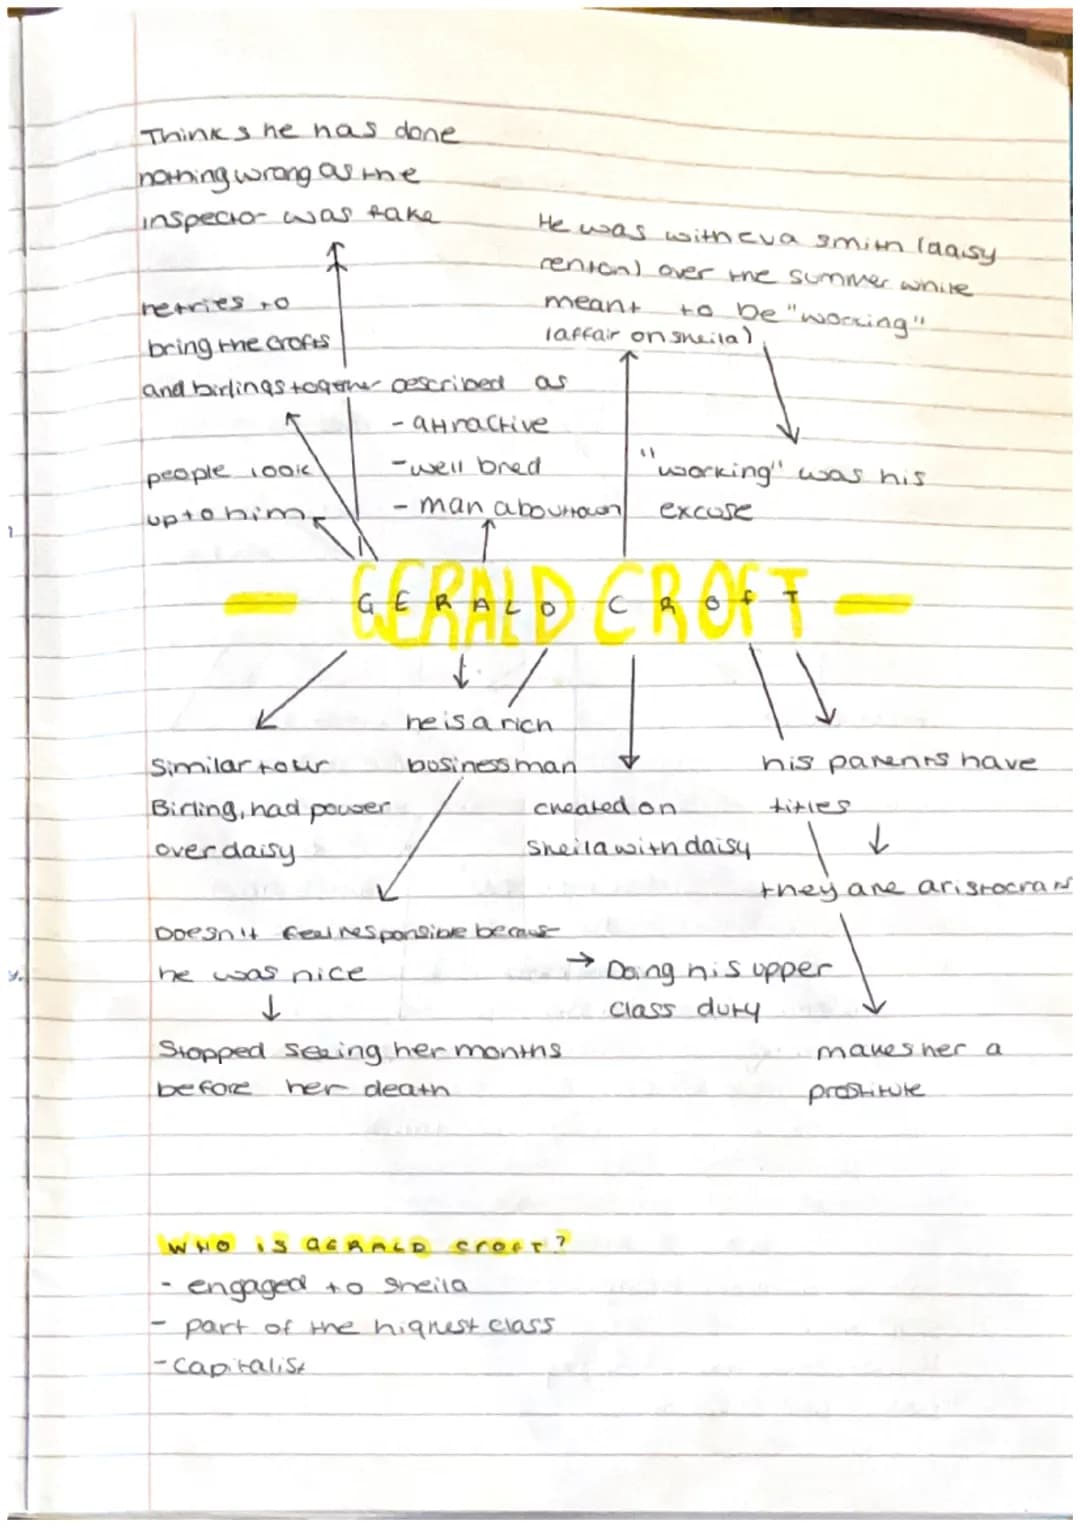 Thinks he has done
nothing wrong as the
inspector was fake
He was with eva smith (daisy
renton) over the summer while
meant to be "working"
(affair on sheila)
he tries to
bring the crofts
and birlings together
described as
- attractive
- well bred
- man about town
people look
up to him
"working" was his
excuse
- GERALD CROFT -
he is a rich
business man
Similar to mr
Birling, had power
over daisy
cheated on
Sheila with daisy
his parents have
titles
they are aristocrats
Doesn't feel responsible because
he was nice
→ Doing his upper
class duty
Stopped seeing her months
before her death
makes her a
prostitute
WHO IS GERALD CROFT?
- engaged to sheila
- part of the highest class
- capitalist